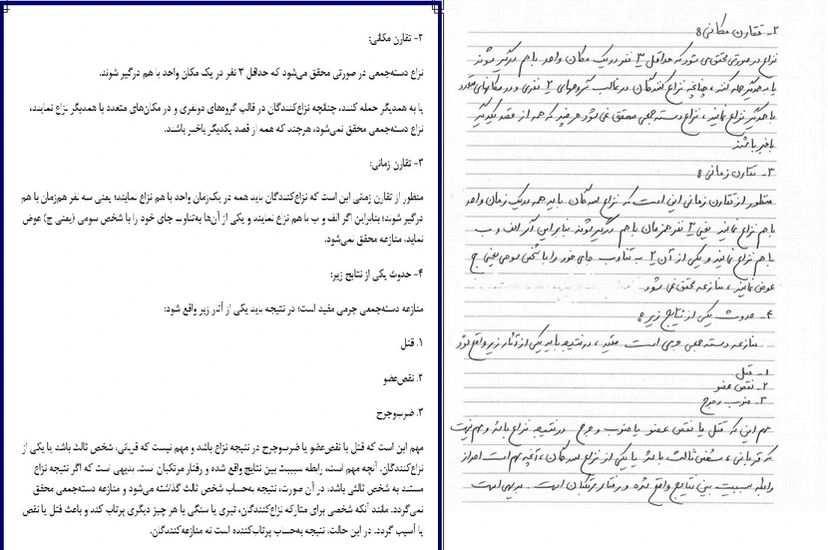 ۲- تقارن مکانی:
نزاع دسته‌جمعی در صورتی محقق می‌شود که حداقل ۳ نفر در یک مکان واحد با هم درگیر شوند.
یا به همدیگر حمله کنند، چنانچه نزاع‌کنندگان در قالب گروه‌های دونفری و در مکان‌های متعدد با همدیگر نزاع نمایند،
نزاع دسته‌جمعی محقق نمی‌شود، هرچند که همه از قصد یکدیگر باخبر باشند.
۳- تقارن زمانی:
منظور از تقارن زمانی این است که نزاع‌کنندگان باید همه در یک‌زمان واحد با هم نزاع نمایند؛ یعنی سه نفر هم‌زمان با هم
درگیر شوند؛ بنابراین اگر الف و ب با هم نزاع نمایند و یکی از آن‌ها به‌تناوب جای خود را با شخص سومی (یعنی ج) عوض
نماید، منازعه محقق نمی‌شود.
۴- حدوث یکی از نتایج زیر:
منازعه دسته‌جمعی جرمی مقید است؛ در نتیجه باید یکی از آثار زیر واقع شود:
۱. قتل
۲. نقص‌عضو
۳. ضرب‌وجرح
مهم این است که قتل یا نقص‌عضو یا ضرب‌وجرح در نتیجه نزاع باشد و مهم نیست که قربانی، شخص ثالث باشد یا یکی از
نزاع‌کنندگان. آنچه مهم است، رابطه سببیت بین نتایج واقع شده و رفتار مرتکبان است. بدیهی است که اگر نتیجه نزاع
مستند به شخص ثالثی باشد، در آن صورت، نتیجه به‌حساب شخص ثالث گذاشته می‌شود و منازعه دسته‌جمعی محقق
نمی‌گردد. مانند آنکه شخصی برای متارکه نزاع‌کنندگان، تیری یا سنگی یا هر چیز دیگری پرتاب کند و باعث قتل یا نقص
یا آسیب گردد. در این حالت، نتیجه به‌حساب پرتاب‌کننده است نه منازعه‌کنندگان.
۲- تقارن مکانی:
نزاع در صورتی محقق می شود که حداقل ۳ نفر در یک مکان واحد با هم درگیر شوند
یا به همدیگر حمله کنند، چنانچه نزاع کنندگان در قالب گروههای ۲ نفری و در مکانهای متعدد
با همدیگر نزاع نمایند، نزاع دسته جمعی محقق نمی شود هرچند که همه از قصد یکدیگر
باخبر باشند
۳- تقارن زمانی:
منظور از تقارن زمانی این است که نزاع کنندگان باید همه در یک زمان واحد
با هم نزاع نمایند یعنی ۳ نفر همزمان با هم درگیر شوند بنابراین اگر الف و ب
با هم نزاع نمایند و یکی از آن ۲ به تناوب جای خود را با شخص سومی یعنی ج
عوض نمایند، منازعه محقق نمی شود.
۴- حدوث یکی از نتایج زیر:
منازعه دسته جمعی جرمی است مقید، در نتیجه باید یکی از آثار زیر واقع شود
۱- قتل
۲- نقص عضو
۳- ضرب و جرح
مهم این که قتل یا نقص عضو یا ضرب و جرح در نتیجه نزاع باشد و مهم نیست
که قربانی، شخص ثالث باشد یا یکی از نزاع کنندگان، آنچه مهم است احراز
رابطه سببیت بین نتایج واقع شده و رفتار مرتکبان است. بدیهی است